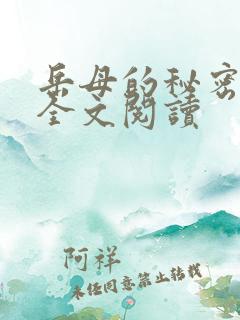 岳母的秘密
全文閱讀
阿祥
未经同意禁止转载